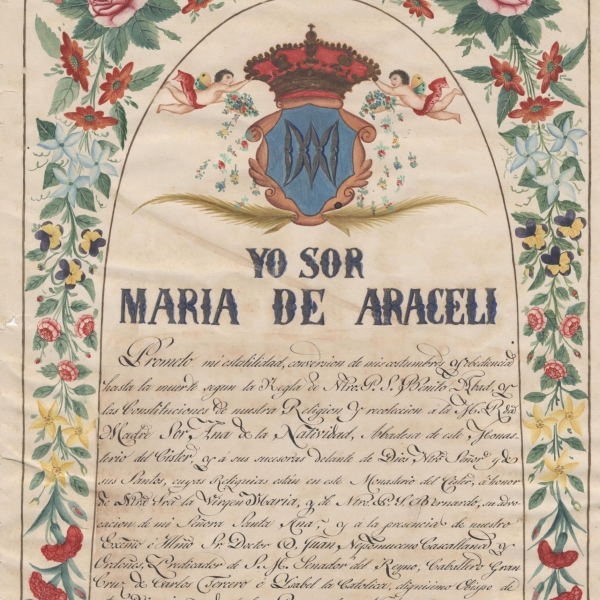 YO SOR
MARIA DE ARACELI
Prometo mi estabilidad, conversion de mis costumbres y obediencia
hasta la muerte segun la Regla de Ntro. P. S. Benito Abad, y
las Constituciones de nuestra Religion y recoleccion á la M. Rda
Madre Sor Ana de la Natividad, Abadesa de este Monas-
terio del Cister, y á sus sucesoras delante de Dios Ntro Señor y de
sus Santos, cuyas Reliquias están en este Monasterio del Cister, á honor
de Ntra Sra la Virgen Maria, y de Ntro P. S. Bernardo, su advo-
cacion de mi Señora Santa Ana, y á la presencia de nuestro
Excmo é Illmo Sr Doctor D. Juan Nepomuceno Cascallana y
Ordoñez, Predicador de S. M. Senador del Reyno, Caballero Gran
Cruz de Carlos Tercero é Ysabel la Catolica, dignisimo Obispo de